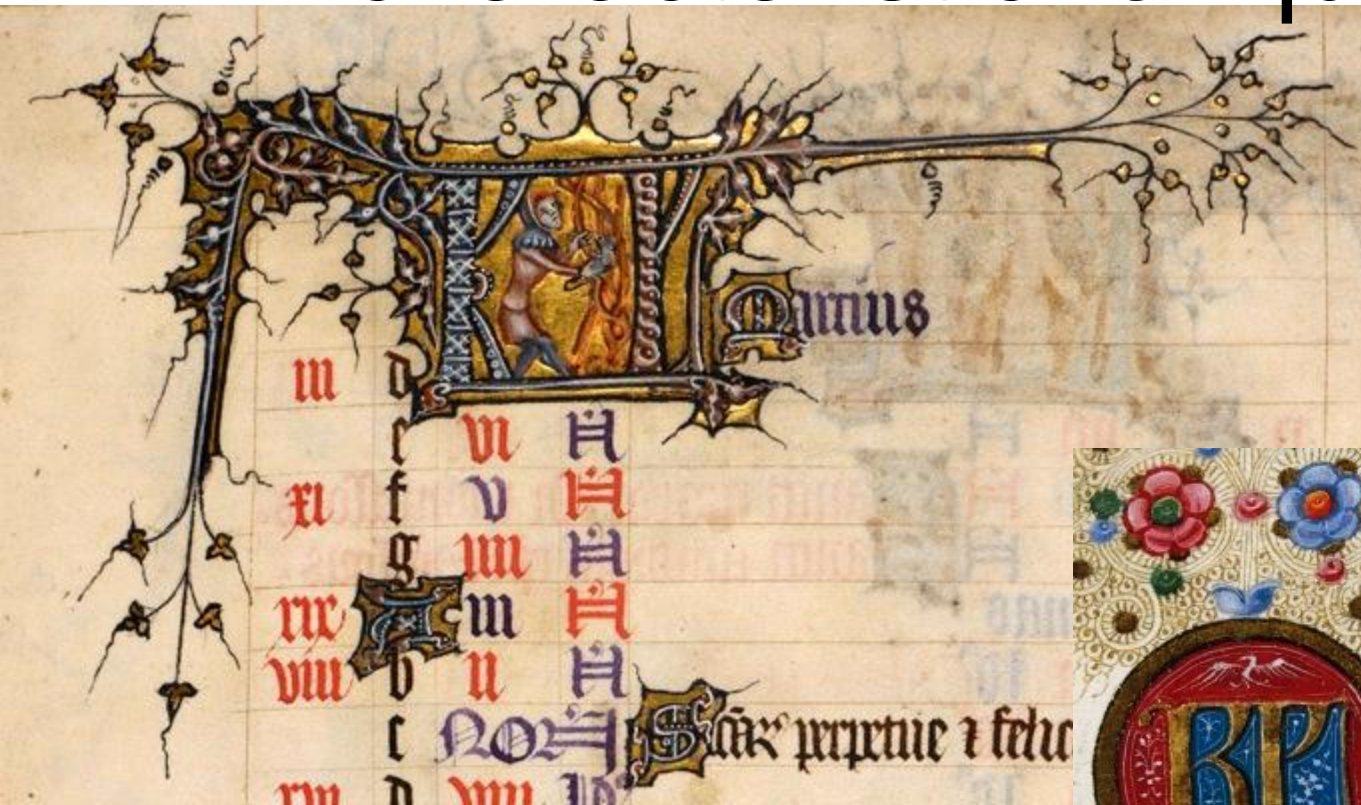 KL Martius
III d
e VI N
XI f V N
g IIII N
XIX A III N
VIII b II N
c NON Scarum perpetue ⁊ felic
XVI d VIII Id